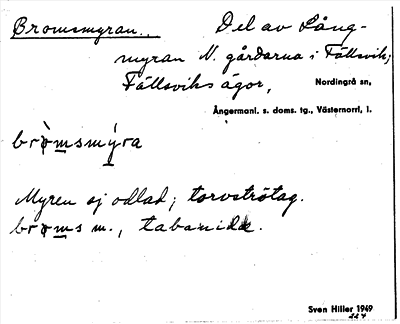 Bromsmyran.. Del av Lång-
myran N. gårdarna i Fällsvik;
Fällsviks ägor, Nordingrå sn,
Ångermanl. s. doms. tg., Västernorrl, l.
bròmsmýra
Myren ej odlad; torvströtag.
broms m., tabanid.
Sven Hiller 1949